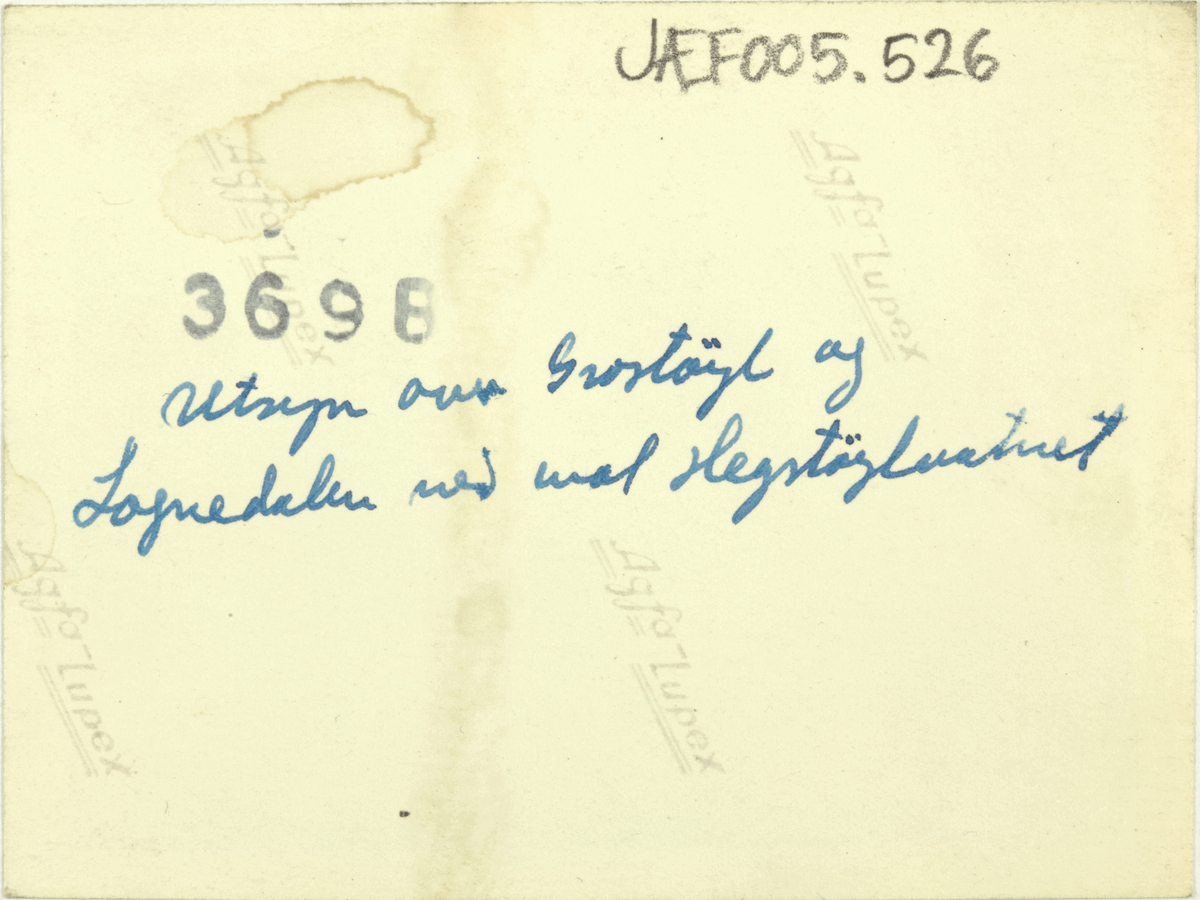 JÆF005.526
Agfa-Lupex
Agfa-Lupex
3698
Utsyn over Grostöyl og
Lognedalen ned mot Hegstöylvatnet
Agfa-Lupex
Agfa-Lupex